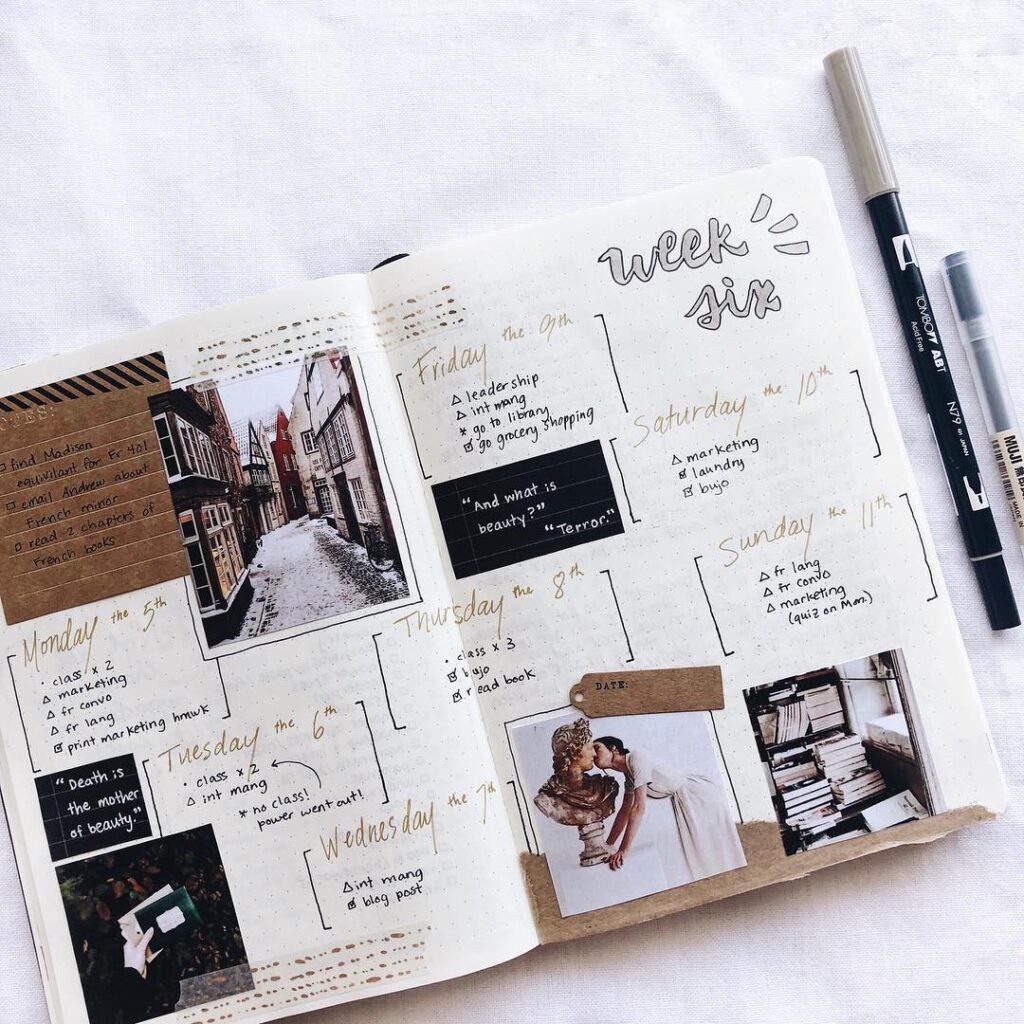 NOTES:
find Madison
equivilant for Fr 401
email Andrew about
French minor
read 2 chapters of
French books
Monday the 5th
class x 2
marketing
fr convo
fr lang
print marketing hmwk
"Death is
the mother
of beauty."
Tuesday the 6th
class x 2
int mang
* no class!
power went out!
Wednesday the 7th
int mang
blog post
week
six
Friday the 9th
leadership
int mang
* go to library
go grocery shopping
"And what is
beauty?"
"Terror."
Thursday the 8th
class x 3
bujo
read book
Saturday the 10th
marketing
laundry
bujo
Sunday the 11th
fr lang
fr convo
marketing
(quiz on Mon.)
DATE:
TOMBOW ABT
Acid Free
N79
JAPAN
MUJI